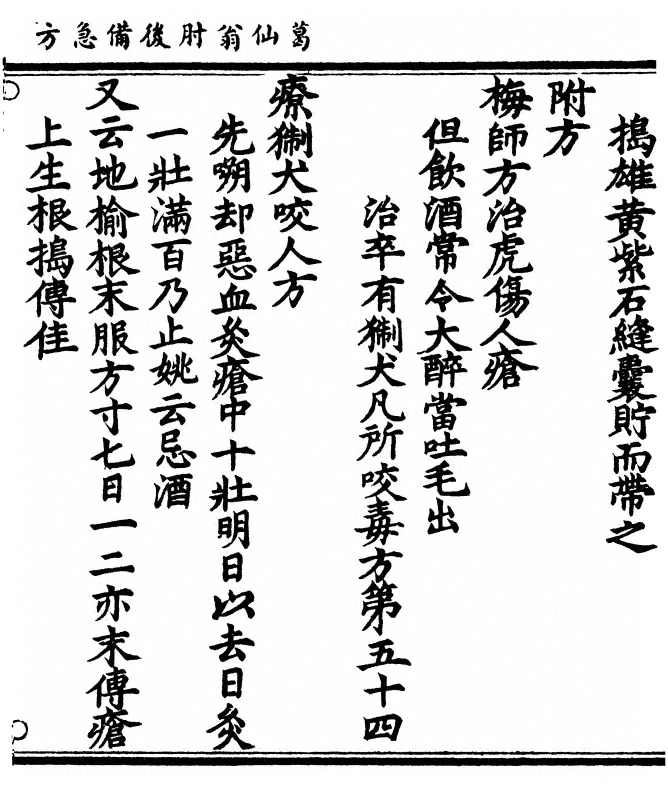 葛仙翁肘後備急方
搗雄黃紫石縫囊貯而帶之
附方
梅師方治虎傷人瘡
但飲酒常令大醉當吐毛出
治卒有猘犬凡所咬毒方第五十四
療猘犬咬人方
先嗍却惡血灸瘡中十壯明日以去日灸
一壯滿百乃止姚云忌酒
又云地榆根末服方寸七日一二亦末傅瘡
上生根搗傅佳